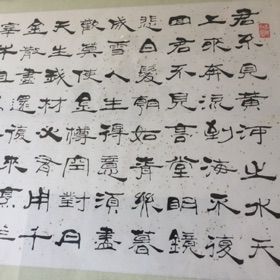 君不見黃河之水天
上来奔流到海不復
回君不見高堂明鏡
悲白髮朝如青絲暮
成雪人生得意須盡
歡莫使金樽空對月
天生我材必有用千
金散盡還復来烹羊
宰牛且